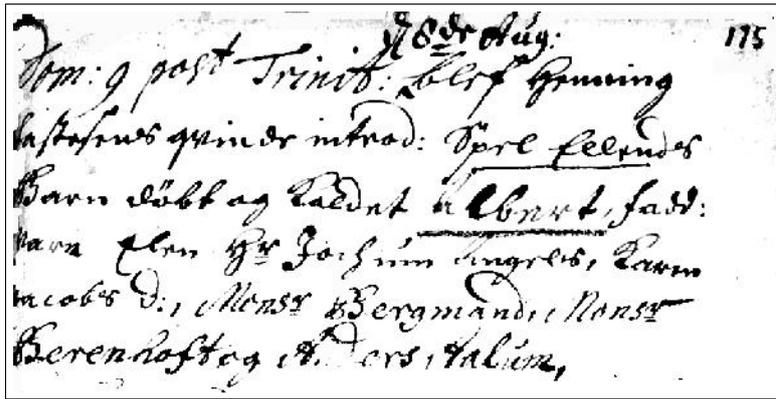 d 8de Aug: 175
Dom: 9 post Trinit: blef Henning
qvinde introd: Spel Ellends
Barn døbt og Kaldet Albert, fadd:
vare Elen Hr Jochum Angels, Karen
Jacobs d:, Monsr Bergmand, Monsr
Berenhoft og Anders